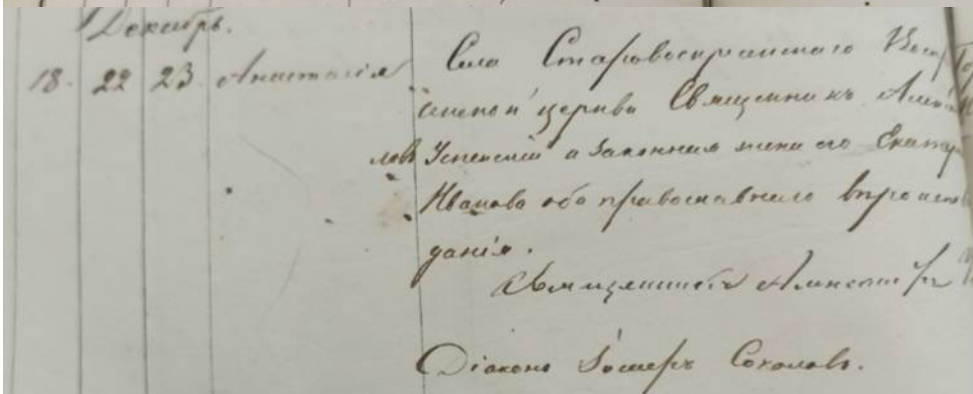 Декабрь.
18. 22 23 Анастасія
Села Старовоскресенскаго Воскр
сенской церкви Священникъ
Успенскій и законная жена его Екатер
Иванова оба православнаго вѣроиспо
данія.
Священникъ
Діаконъ Соколовъ.